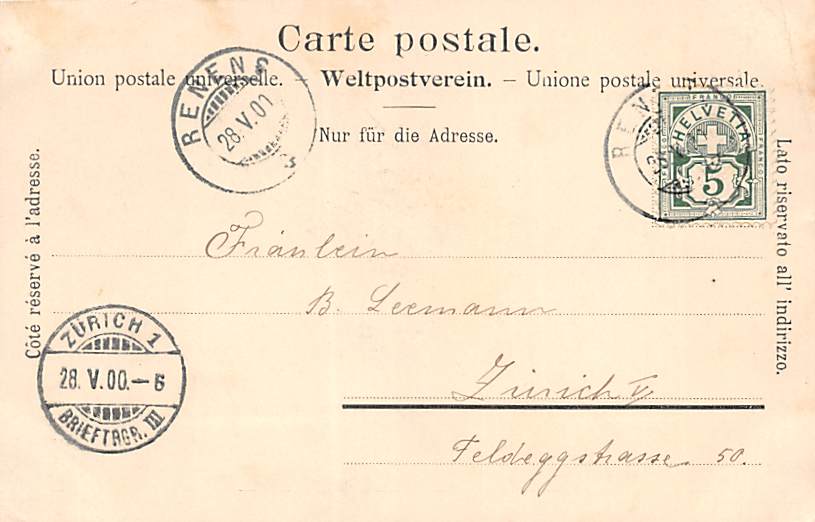 Carte postale.
Union postale universelle. – Weltpostverein. – Unione postale universale.
Nur für die Adresse.
RENENS
28.V.00
RENE
FRANCO
HELVETIA
FRANCO
FRANCO
5
Côté réservé à l'adresse.
Lato riservato all' indirizzo.
Fräulein
B. Leemann
Zürich V
Feldeggstrasse 50.
ZÜRICH 1
28.V.00.–6
BRIEFTRGR. III